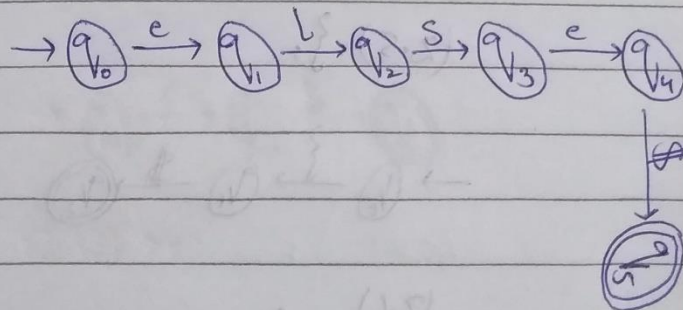 → q0 e → q1 l → q2 s → q3 e → q4
$
q5